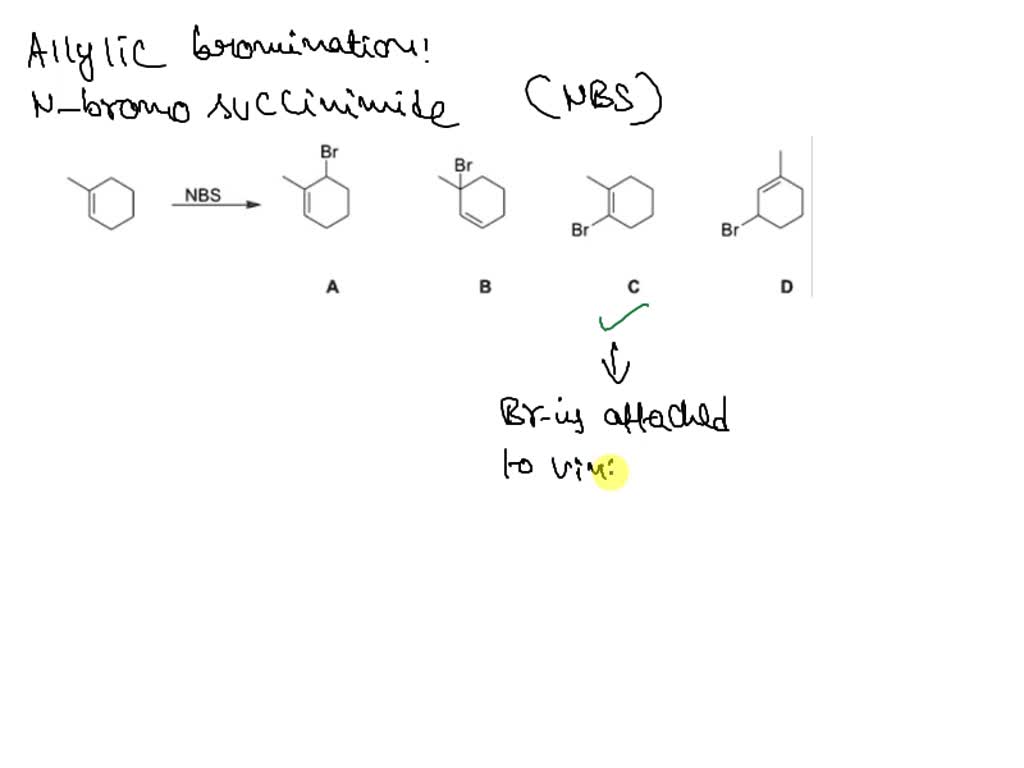 Allylic bromination:
N-bromo succinimide (NBS)
Br
Br
NBS
Br
Br
A
B
C
D
Br-is attached
to vin